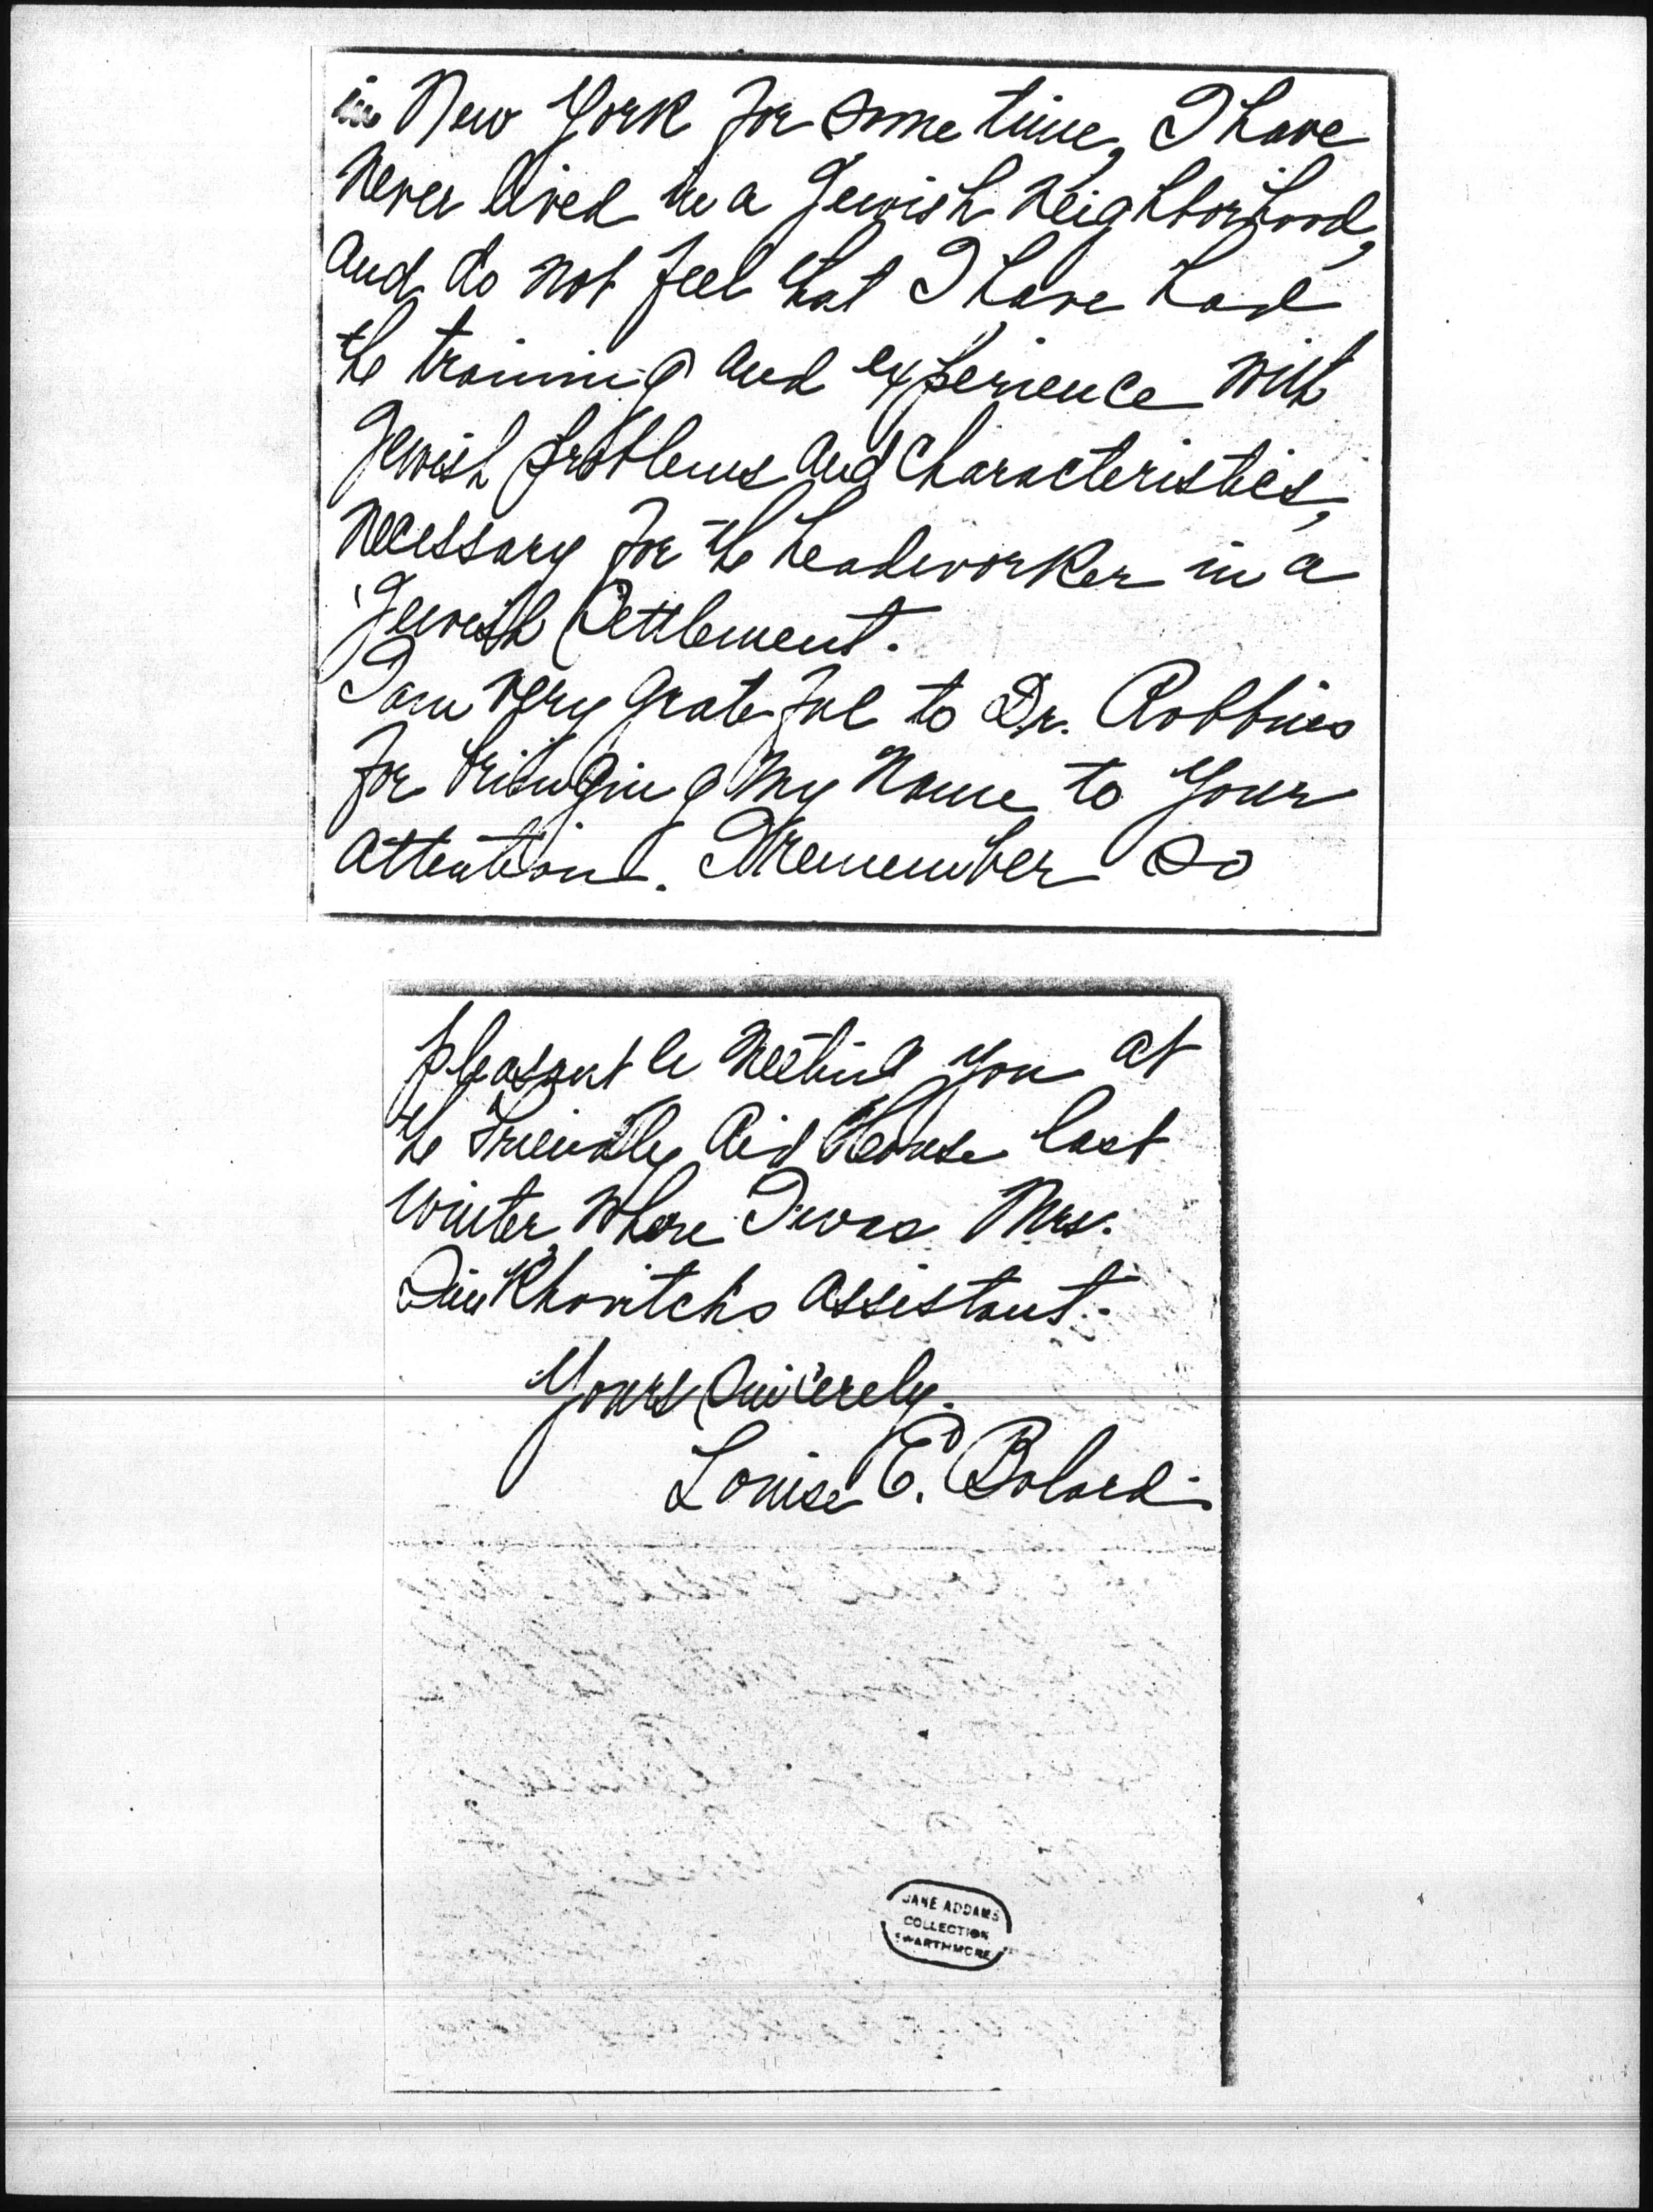 in New York for some time, I have
never lived in a Jewish neighborhood,
and do not feel that I have had
the training and experience with
Jewish problems and characteristics,
necessary for the headworker in a
Jewish Settlement.
I am very grateful to Dr. Robbins
for bringing my name to your
attention. I remember so
pleasantly meeting you at
the Friendly Aid House last
winter, where I was Mrs.
Simkhovitch's assistant.
Yours sincerely.
Louise E. Bolard.
JANE ADDAMS
COLLECTION
SWARTHMORE